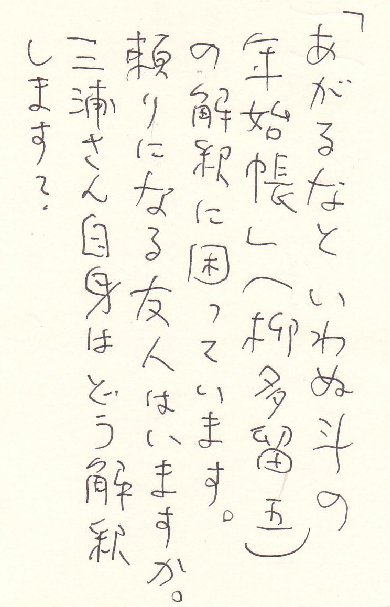 「あがるなといわぬ斗の
年始帳」(柳多留五)
の解釈に困っています。
頼りになる友人はいますか。
三浦さん自身はどう解釈
します?